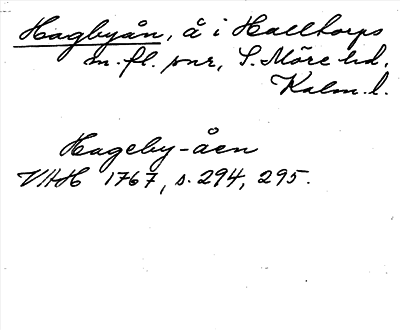 Hagbyån, å i Halltorps
m. fl. snr, S. Möre hd,
Kalm. l.
Hageby-åen
VAH 1767, s. 294, 295.